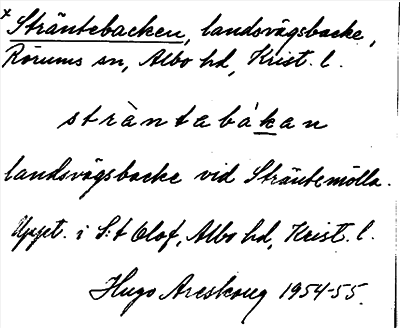 × Sträntebacken, landsvägsbacke,
Rörums sn, Albo hd, Krist. l.
stràntabákan
landsvägsbacke vid Sträntemölla.
Uppt. i S:t Olof, Albo hd, Krist. l.
Hugo Areskoug 1954-55.